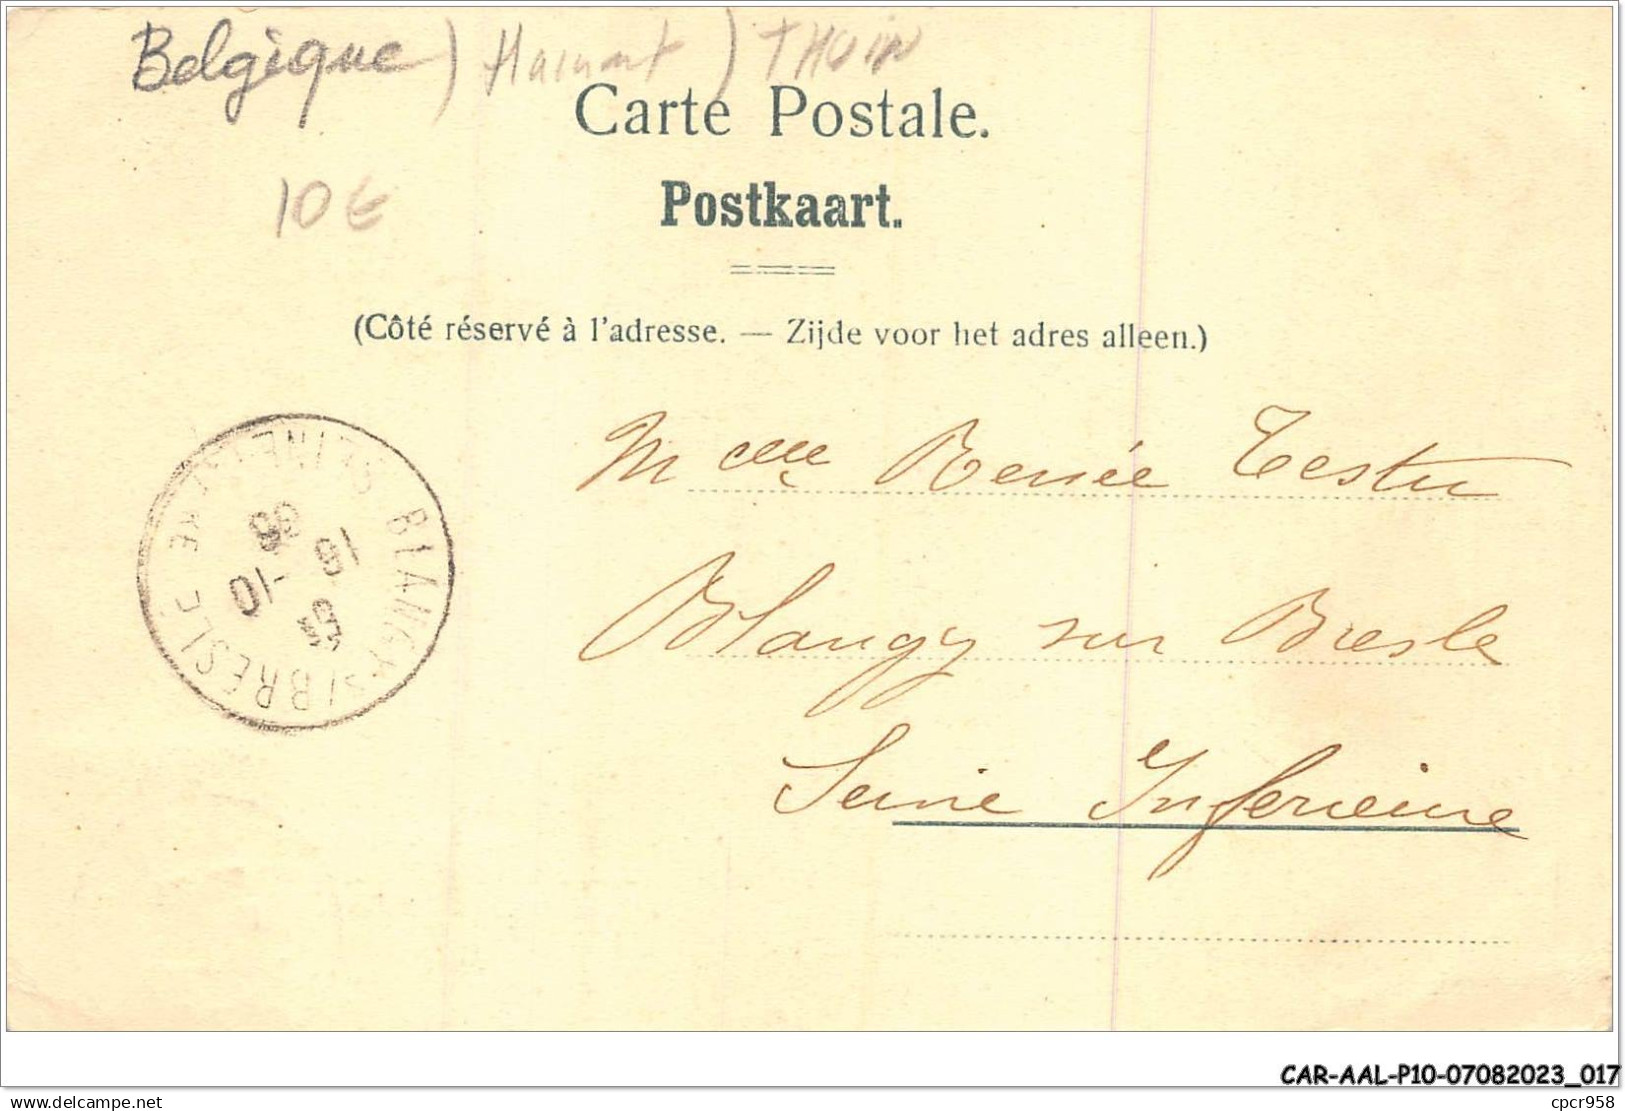 Belgique) Hainaut) THUIN
Carte Postale.
10 €
Postkaart.
(Côté réservé à l'adresse. — Zijde voor het adres alleen.)
Melle Renée Testu
Blangy sur Bresle
Seine Inferieure
BLANGY-S/BRESLE
SEINE
16 -10
CAR-AAL-P10-07082023_017
cpcr958